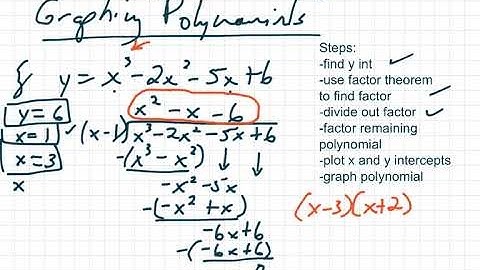 Graphing Polynomials
y = x³ - 2x² - 5x + 6
y = 6
x² - x - 6
x = 1 ✓ (x-1) x³ - 2x² - 5x + 6
x = 3
-(x³ - x²) ↓ ↓
x
-x² - 5x
-(-x² + x)
-6x + 6
-(-6x + 6)
0
Steps:
-find y int ✓
-use factor theorem
to find factor ✓
-divide out factor ✓
-factor remaining
polynomial
-plot x and y intercepts
-graph polynomial
(x-3)(x+2)